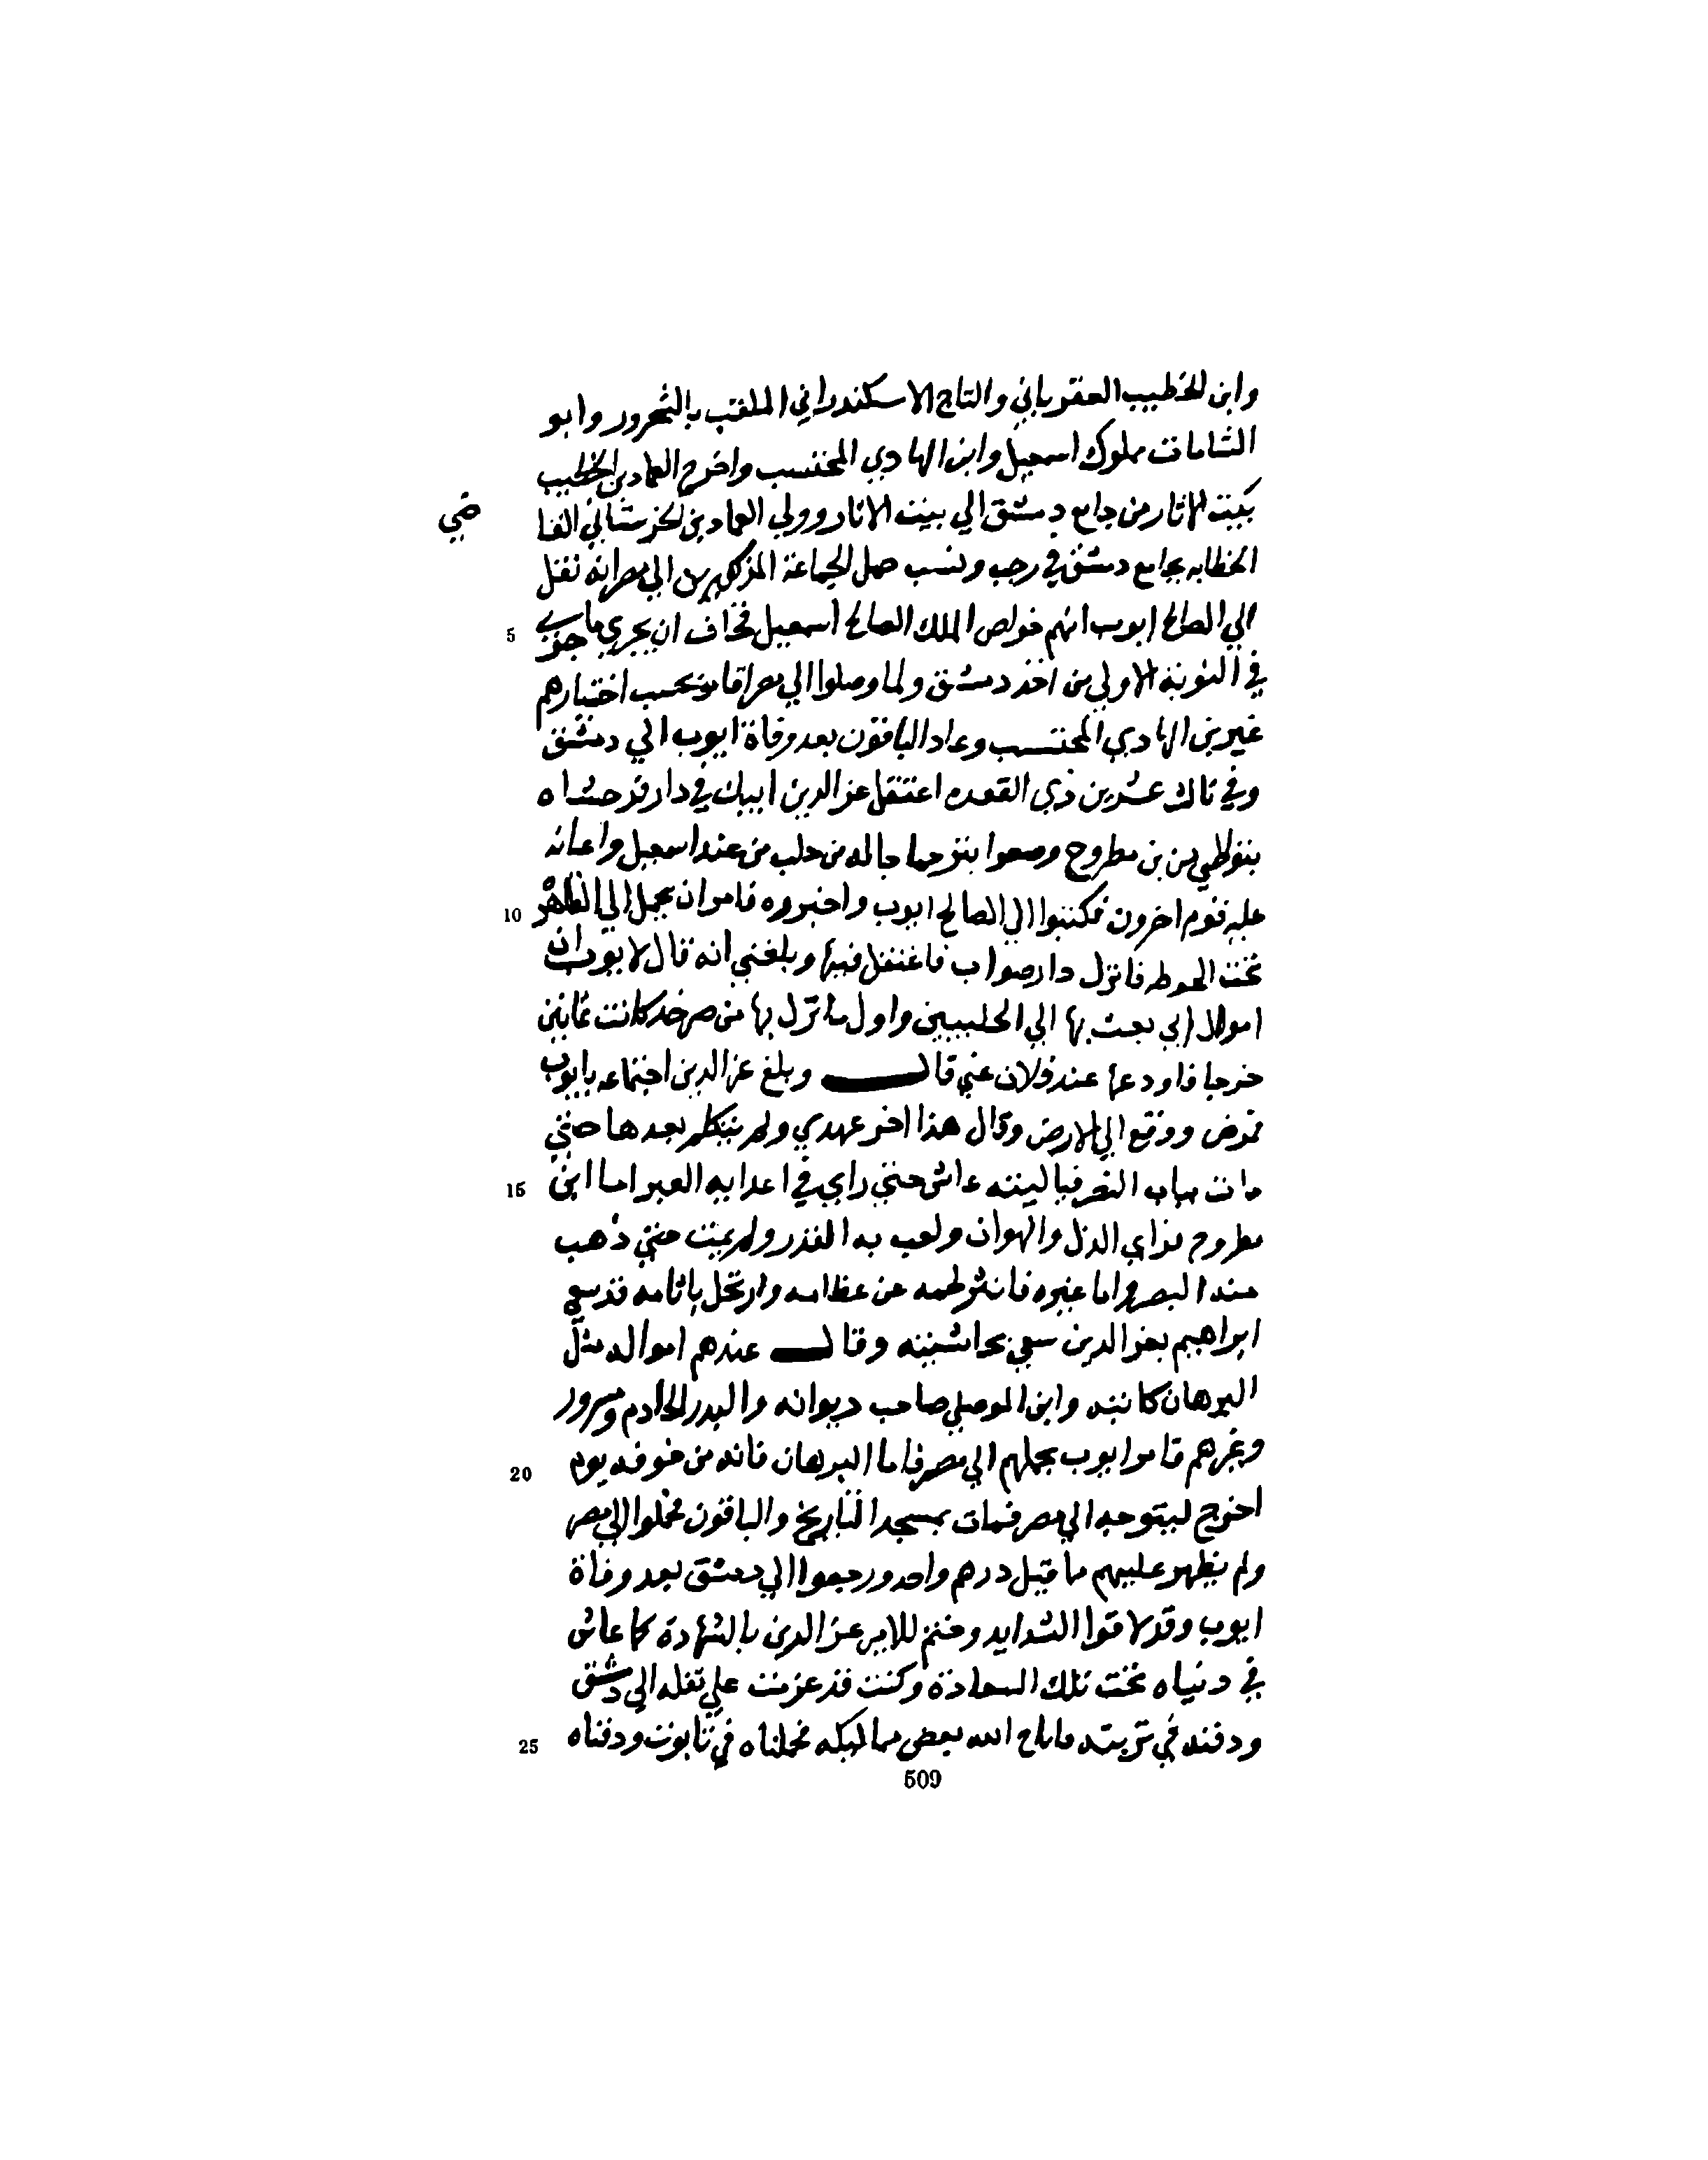 وابن الخطيب العقرباني والتاج الاسكندراني الملقب بالشحرور وابو
الشامات مملوك اسمعيل وابن الهادي المحتسب واخرج العماد بن الخطيب
بيت الاثار من جامع دمشق الي بيت الاثار وولي العماد بن الحرستاني القا
ضي
الخطابه بجامع دمشق في رجب ونسب حمل الجماعة المذكورين الي مصر انه نقل
الي الصالح ايوب انهم خواص الملك الصالح اسمعيل فخاف ان يجري ما جري
5
في النوبة الاولي من اخذ دمشق ولما وصلوا الي مصر اقاموا بحسب اختيارهم
غير بن الهادي المحتسب وعاد الباقون بعد وفاة ايوب الي دمشق
وفي ثالث عشرين ذي القعده اعتقل عز الدين ايبك في دار فرخشاه
بن مطروح وصعوا مترجما جا له من حلب من عند اسمعيل واعانه
عليه قوم اخرون فكتبوا الي الصالح ايوب واخبروه فامر ان يحمل الي القاهر
10
تحت الحوطه فانزل دار صواب فاعتقل فيها وبلغني انه قال لايوب ان
اموال ابي بعث بها الي الحلبيين واول ما نزل بها من صرخد كانت ثمانين
خرجا فاودعها عند فلان عني قال وبلغ عز الدين اجتماعه بايوب
فمرض ووقع الي الارض وقال هذا اخر عهدي ولم يتكلم بعدها حتي
مات بباب النصر فياليته عاش حتي راي في اعدايه العبر اما ابن
15
مطروح فراي الذل والهوان ولعب به القدر ولم يمت حتي ذهب
منه البصر واما غيره فانثر لحمه عن عظامه وارتحل باثامه قد سعي
ابراهيم بعز الدين سعي بحاشيته وقال عندهم امواله مثل
البرهان كاتبه وابن الموصلي صاحب ديوانه والبدر الخادم ومسرور
وغيرهم فامر ايوب بحملهم الي مصر فاما البرهان فانه من خوفه يوم
20
اخرج ليتوجه الي مصر فمات بمسجد التاريخ والباقون حملوا الي مصر
ولم يظهر عليهم ما قيل درهم واحد ورجعوا الي دمشق بعد وفاة
ايوب وقد لاقوا الشدايد وختم للامير عز الدين بالشهادة كما عاش
في دنياه تحت تلك السعادة وكنت قد عزمت علي نقله الي دمشق
ودفنه في تربته فاتاح الله بعض مماليكه فحملناه في تابوت ودفناه
25
509